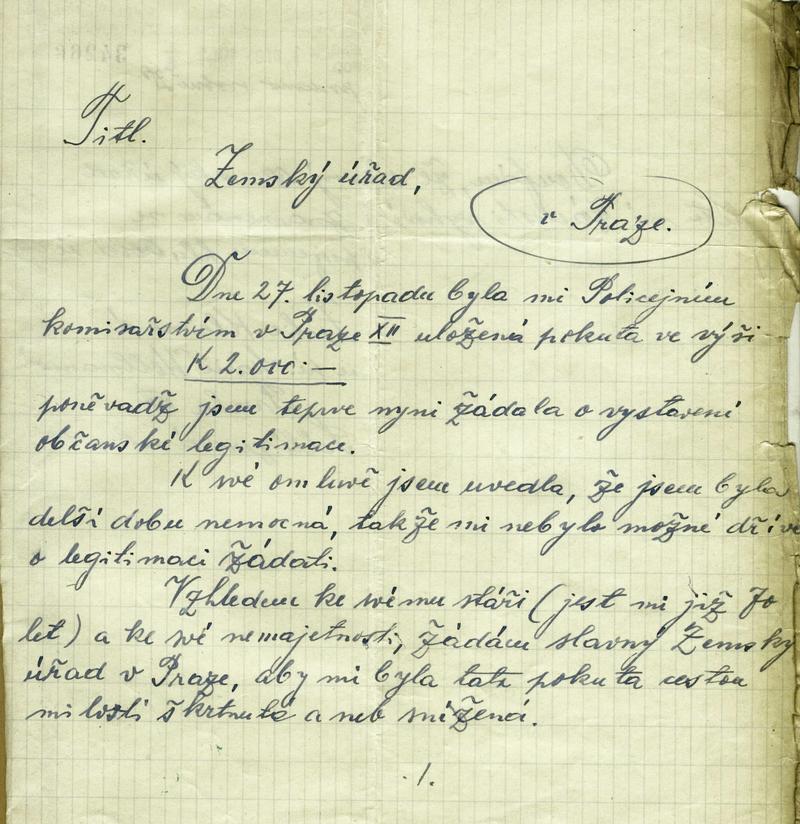 Titl.
Zemský úřad,
v Praze.
Dne 27. listopadu byla mi Policejním
komisařstvím v Praze XII uložená pokuta ve výši
K 2.000.—
poněvadž jsem teprve nyni žádala o vystavení
občanské legitimace.
K své omluvě jsem uvedla, že jsem byla
delší dobu nemocná, takže mi nebylo možné dříve
o legitimaci žádati.
Vzhledem ke svému stáří (jest mi již 70
let) a ke své nemajetnosti, žádám slavný Zemský
úřad v Praze, aby mi byla tato pokuta cestou
milosti škrtnutá a neb snížená.
./.